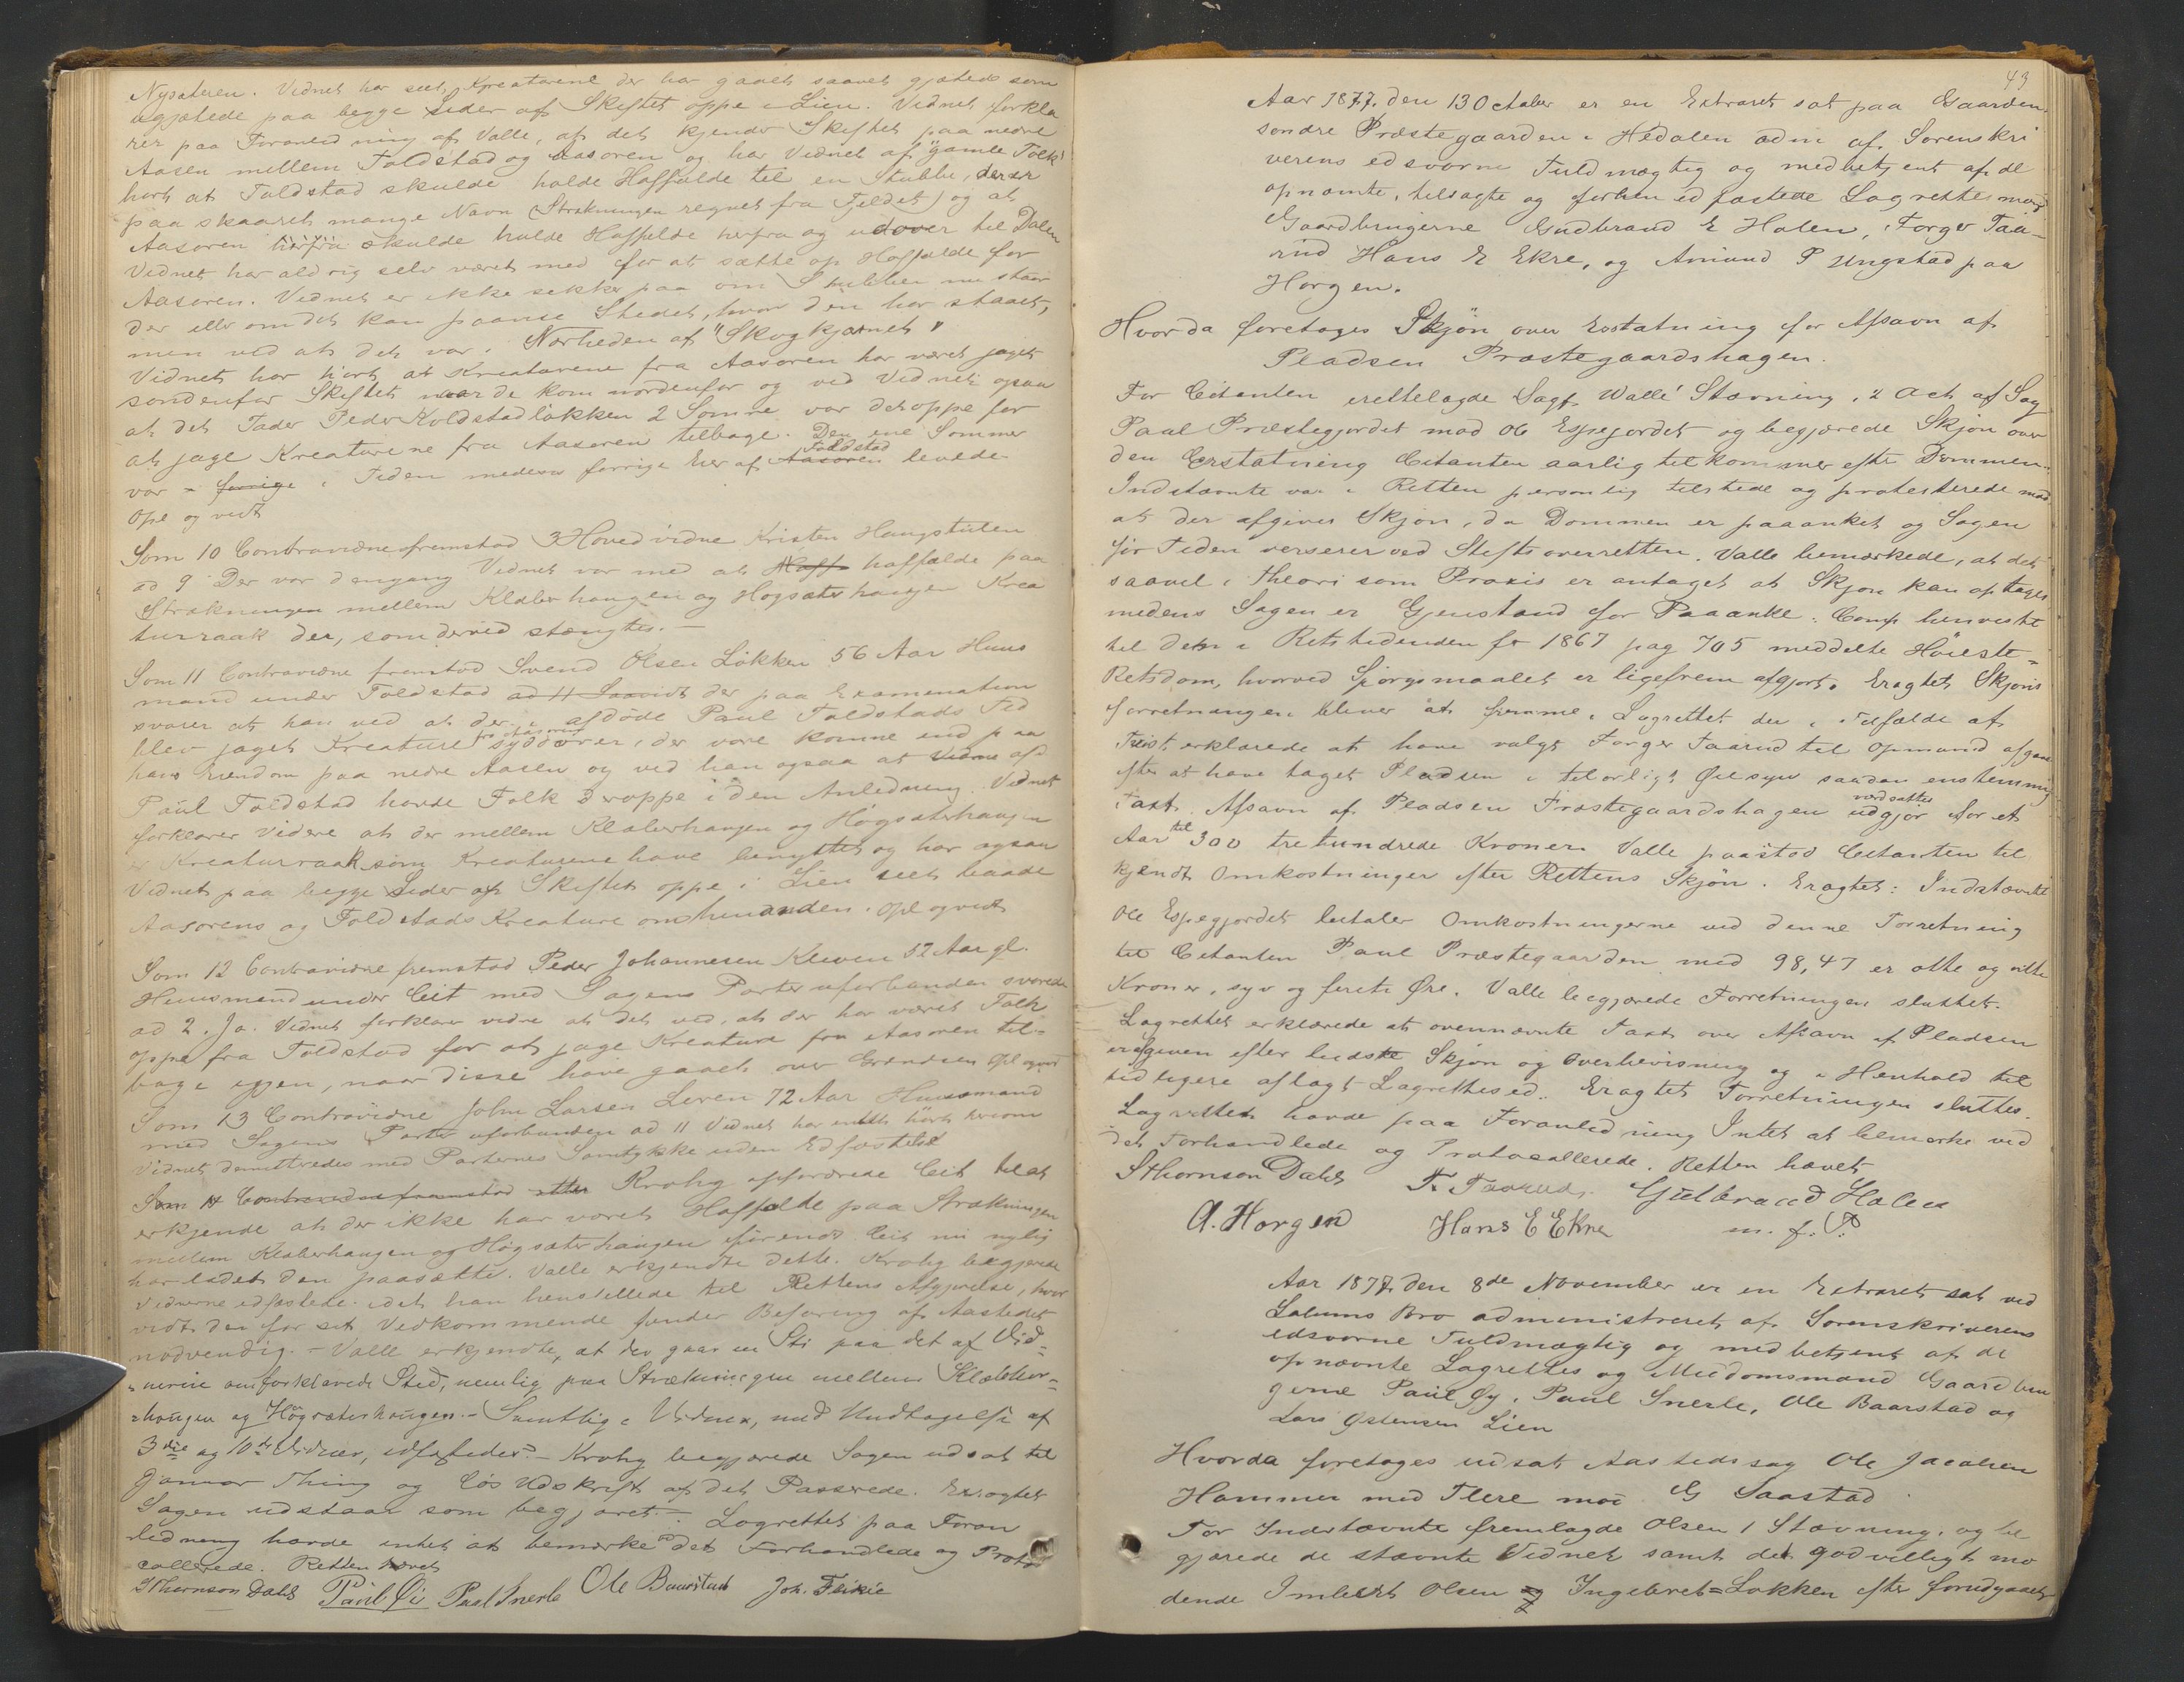 Nysæteren. Vidnet har seet, Kreaturene der har gaaet saavel gjætede som
ugjætede paa begge Sider af Skiftet oppe i Lien. Vidnet forkla
rer paa Foranledning af Valle, at det kjender Skiftet paa nedre
Aasen mellem Foldstad og Aasoren og har Vidnet af "gamle Folk"
hørt at Foldstad skulde holde Haffælde til en Stubbe, der er
paa skaaret mange Navn (Strækningen regnet fra Fjeldet) og at
Aasoren herfra skulde holde Haffælde herfra og udover til Dalen
Vidnet har aldrig selv været med for at sætte op Haffælde for
Aasoren. Vidnet er ikke sikker paa om Stubben nu staar
der eller om det kan paavise Stedet, hvor den har staaet,
men ved at det var i Nærheden af "Skogkjærnet"
Vidnet har hørt at Kreaturene fra Aasoren har været jaget
søndenfor Skiftet naar de kom nordenfor og ved Vidnet ogsaa
at det Fader Peder Koldstadløkken 2 Somre var deroppe for
at jage Kreaturene fra Aasoren tilbage. Den ene Sommer
var - forrige i Tiden medens forrige Eier af Aasoren Foldstad levede
Opl og vedt
Som 10 Contravidne fremstod 3 Hovedvidne Kristen Haugstulen
ad 9 Der var dengang Vidnet var med at Haff haffælde paa
Strækningen mellem Kleberhaugen og Høgsæterhaugen Krea
turraak der, som derved stængtes.-
Som 11 Contravidne fremstod Svend Olsen Løkken 56 Aar Huus
mand under Foldstad ad 11 Saavidt der paa Examination
svarer at han ved at der i afdøde Paul Foldstads Tid
blev jaget Kreature fra Aasoren sydover, der vare komne ind paa
hans Eiendom paa nedre Aasen og ved han ogsaa at Vidne afd
Paul Foldstad havde Folk deroppe i den Anledning. Vidnet
forklarer videre at der mellem Kleberhaugen og Høgsæterhaugen
er Kreaturraak som Kreaturene have benyttet og har ogsaa
Vidnet paa begge Sider af Skiftet oppe i Lien seet baade
Aasorens og Foldstads Kreature om hinanden. Opl og vedt
Som 12 Contravidne fremstod Peder Johannesen Kleven 52 Aar gl.
Huusmand under Cit med Sagens Parter uforbunden svarede
ad 2. Ja. Vidnet forklarer vidre at det ved, at der har været Folk
oppe fra Foldstad for at jage Kreature fra Aasoren til-
bage igjen, naar disse have gaaet over Grændsen Opl og vedt
Som 13 Contravidne John Larsen Leren 72 Aar Huusmand
med Sagens Parter uforbunden ad 11 Vidnet har intet hørt herom
Vidnet demitteredes med Parternes Samtykke uden Edfæstelse
Som 14 Contravidne fremstod etter Krohg opfordrede Cit til at
erkjende at der ikke har været Haffælde paa Strækningen
mellem Kleberhaugen og Høgsæterhaugen førend Cit nu nylig
har ladet den paasætte. Valle erkjendte dette. Krohg begjærede
Vidnerne edfæstede idet han henstillede til Rettens Afgjørelse, hvor
vidt den for sit Vedkommende finder Befaring af Aastedet
nødvendig. - Valle erkjendte, at der gaar en Sti paa det af Vid-
nerne omforklarede Sted, nemlig paa Strækningen mellem Kleber-
haugen og Høgsæterhaugen. - Samtlige Vidner, med Undtagelse af
3die og 10de Vidner, edfæstedes. - Krohg begjærede Sagen udsat til
Januar Thing og løs Udskrift af det Passerede. Eragtet
Sagen udstaar som begjæret. - Lagrettet paa Foran
ledning havde intet at bemærke ved det Forhandlede og Proto
collerede. Retten hævet
SThornson Dahl Paul Øi Paal Snerle Ole Baarstad Joh. Feikie
43
Aar 1877 den 13 October er en Extraret sat paa Gaarden
søndre Præstegaarden i Hedalen adm af Sorenskri
verens edsvorne Fuldmægtig og medbetjent af de
opnævnte, tilsagte og forhen edfæstede Lagrettesmænd
Gaardbrugerne Gudbrand E Halen, Torger Taa-
rud Hans E Ekre, og Amund P Ungstad paa
Horgen.
Hvorda foretoges Skjøn over Erstatning for Afsavn af
Pladsen Præstegaardshagen.
For Citanten irettelagde Sagf. Walle Stævning, 2 Act af Sag
Paul Præstegjordet mod Ole Espegjordet og begjærede Skjøn over
den Erstatning Citanten aarlig tilkommer efter Dommen.
Indstævnte var i Retten personlig tilstede og protesterede mod
at der afgives Skjøn, da Dommen er paaanket og Sagen
for Tiden verserer ved Stiftsoverretten. Valle bemærkede, at det
saavel i Theori som Praxis er antaget at Skjøn kan optages
medens Sagen er Gjenstand for Paaanke. Comp henviste
til den i Retstidenden for 1867 pag 705 meddelte Høieste-
Retsdom, hvorved Spørgsmaalet er ligefrem afgjort. Eragtet Skjøns
forretningen bliver at fremme. Lagrettet der i Tilfælde af
Tvist erklærede at have valgt Torger Taarud til Opmand afgav
efter at have taget Pladsen i tilbørligt Øiesyn saadan enstemmig
Taxt. Afsavn af Pladsen Præstegaardshagen udgjør værdsattes for et
Aar til 300 tre hundrede Kroner. Valle paastod Citanten til
kjendt Omkostninger efter Rettens Skjøn. Eragtet: Indstævnte
Ole Espegjordet betaler Omkostningerne ved denne Forretning
til Citanten Paul Præstegaarden med 98,47 er otte og nitti
Kroner, syv og firti Øre. Valle begjærede Forretningen sluttet.
Lagrettet erklærede at ovennævnte Taxt over Afsavn af Pladsen
er afgiven efter bedste Skjøn og Overbevisning og i Henhold til
tidligere aflagt Lagrettesed. Eragtet Forretningen sluttes.
Lagrettet havde paa Foranledning Intet at bemærke ved
det Forhandlede og Protocollerede. Retten hævet
SThornson Dahl T. Taarud. Gulbrand Halen
A. Horgen Hans E Ekre m. f. P.
Aar 1877 den 8de November er en Extraret sat ved
Islums Bro administreret af Sorenskriverens
edsvorne Fuldmægtig og medbetjent af de
opnævnte Lagrettes og Meddomsmænd Gaardbru
gerne Paul Øy, Paul Snerle, Ole Baarstad og
Lars Østensen Lien
Hvorda foretoges udsat Aastedssag Ole Jacobsen
Hammer med Flere mod G Saastad
For Indstævnte fremlagde Olsen 1 Stævning, og be
gjærede de stævnte Vidner samt det godvilligt mø
dende Imbert Olsen og Ingebret Løkken efter forudgaaet